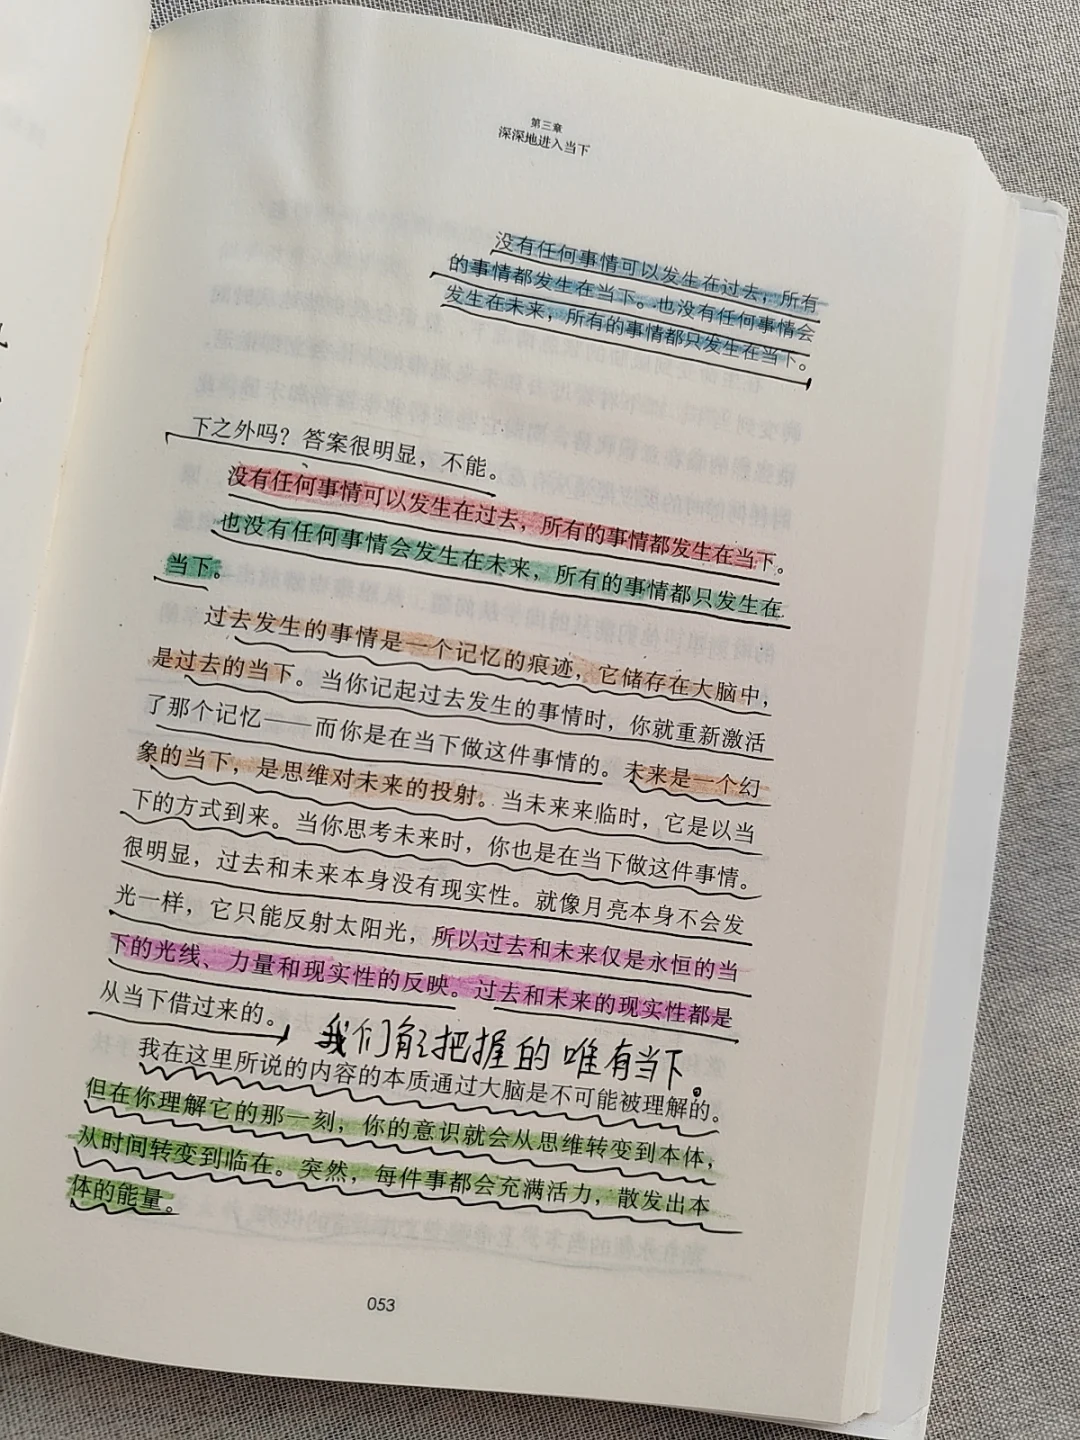 第三章
深深地进入当下
没有任何事情可以发生在过去，所有
的事情都发生在当下。也没有任何事情会
发生在未来，所有的事情都只发生在当下。
下之外吗？答案很明显，不能。
没有任何事情可以发生在过去，所有的事情都发生在当下。
也没有任何事情会发生在未来，所有的事情都只发生在
当下。
过去发生的事情是一个记忆的痕迹，它储存在大脑中，
是过去的当下。当你记起过去发生的事情时，你就重新激活
了那个记忆——而你是在当下做这件事情的。未来是一个幻
象的当下，是思维对未来的投射。当未来来临时，它是以当
下的方式到来。当你思考未来时，你也是在当下做这件事情。
很明显，过去和未来本身没有现实性。就像月亮本身不会发
光一样，它只能反射太阳光，所以过去和未来仅是永恒的当
下的光线、力量和现实性的反映。过去和未来的现实性都是
从当下借过来的。
我们能把握的唯有当下。
我在这里所说的内容的本质通过大脑是不可能被理解的。
但在你理解它的那一刻，你的意识就会从思维转变到本体，
从时间转变到临在。突然，每件事都会充满活力，散发出本
体的能量。
053